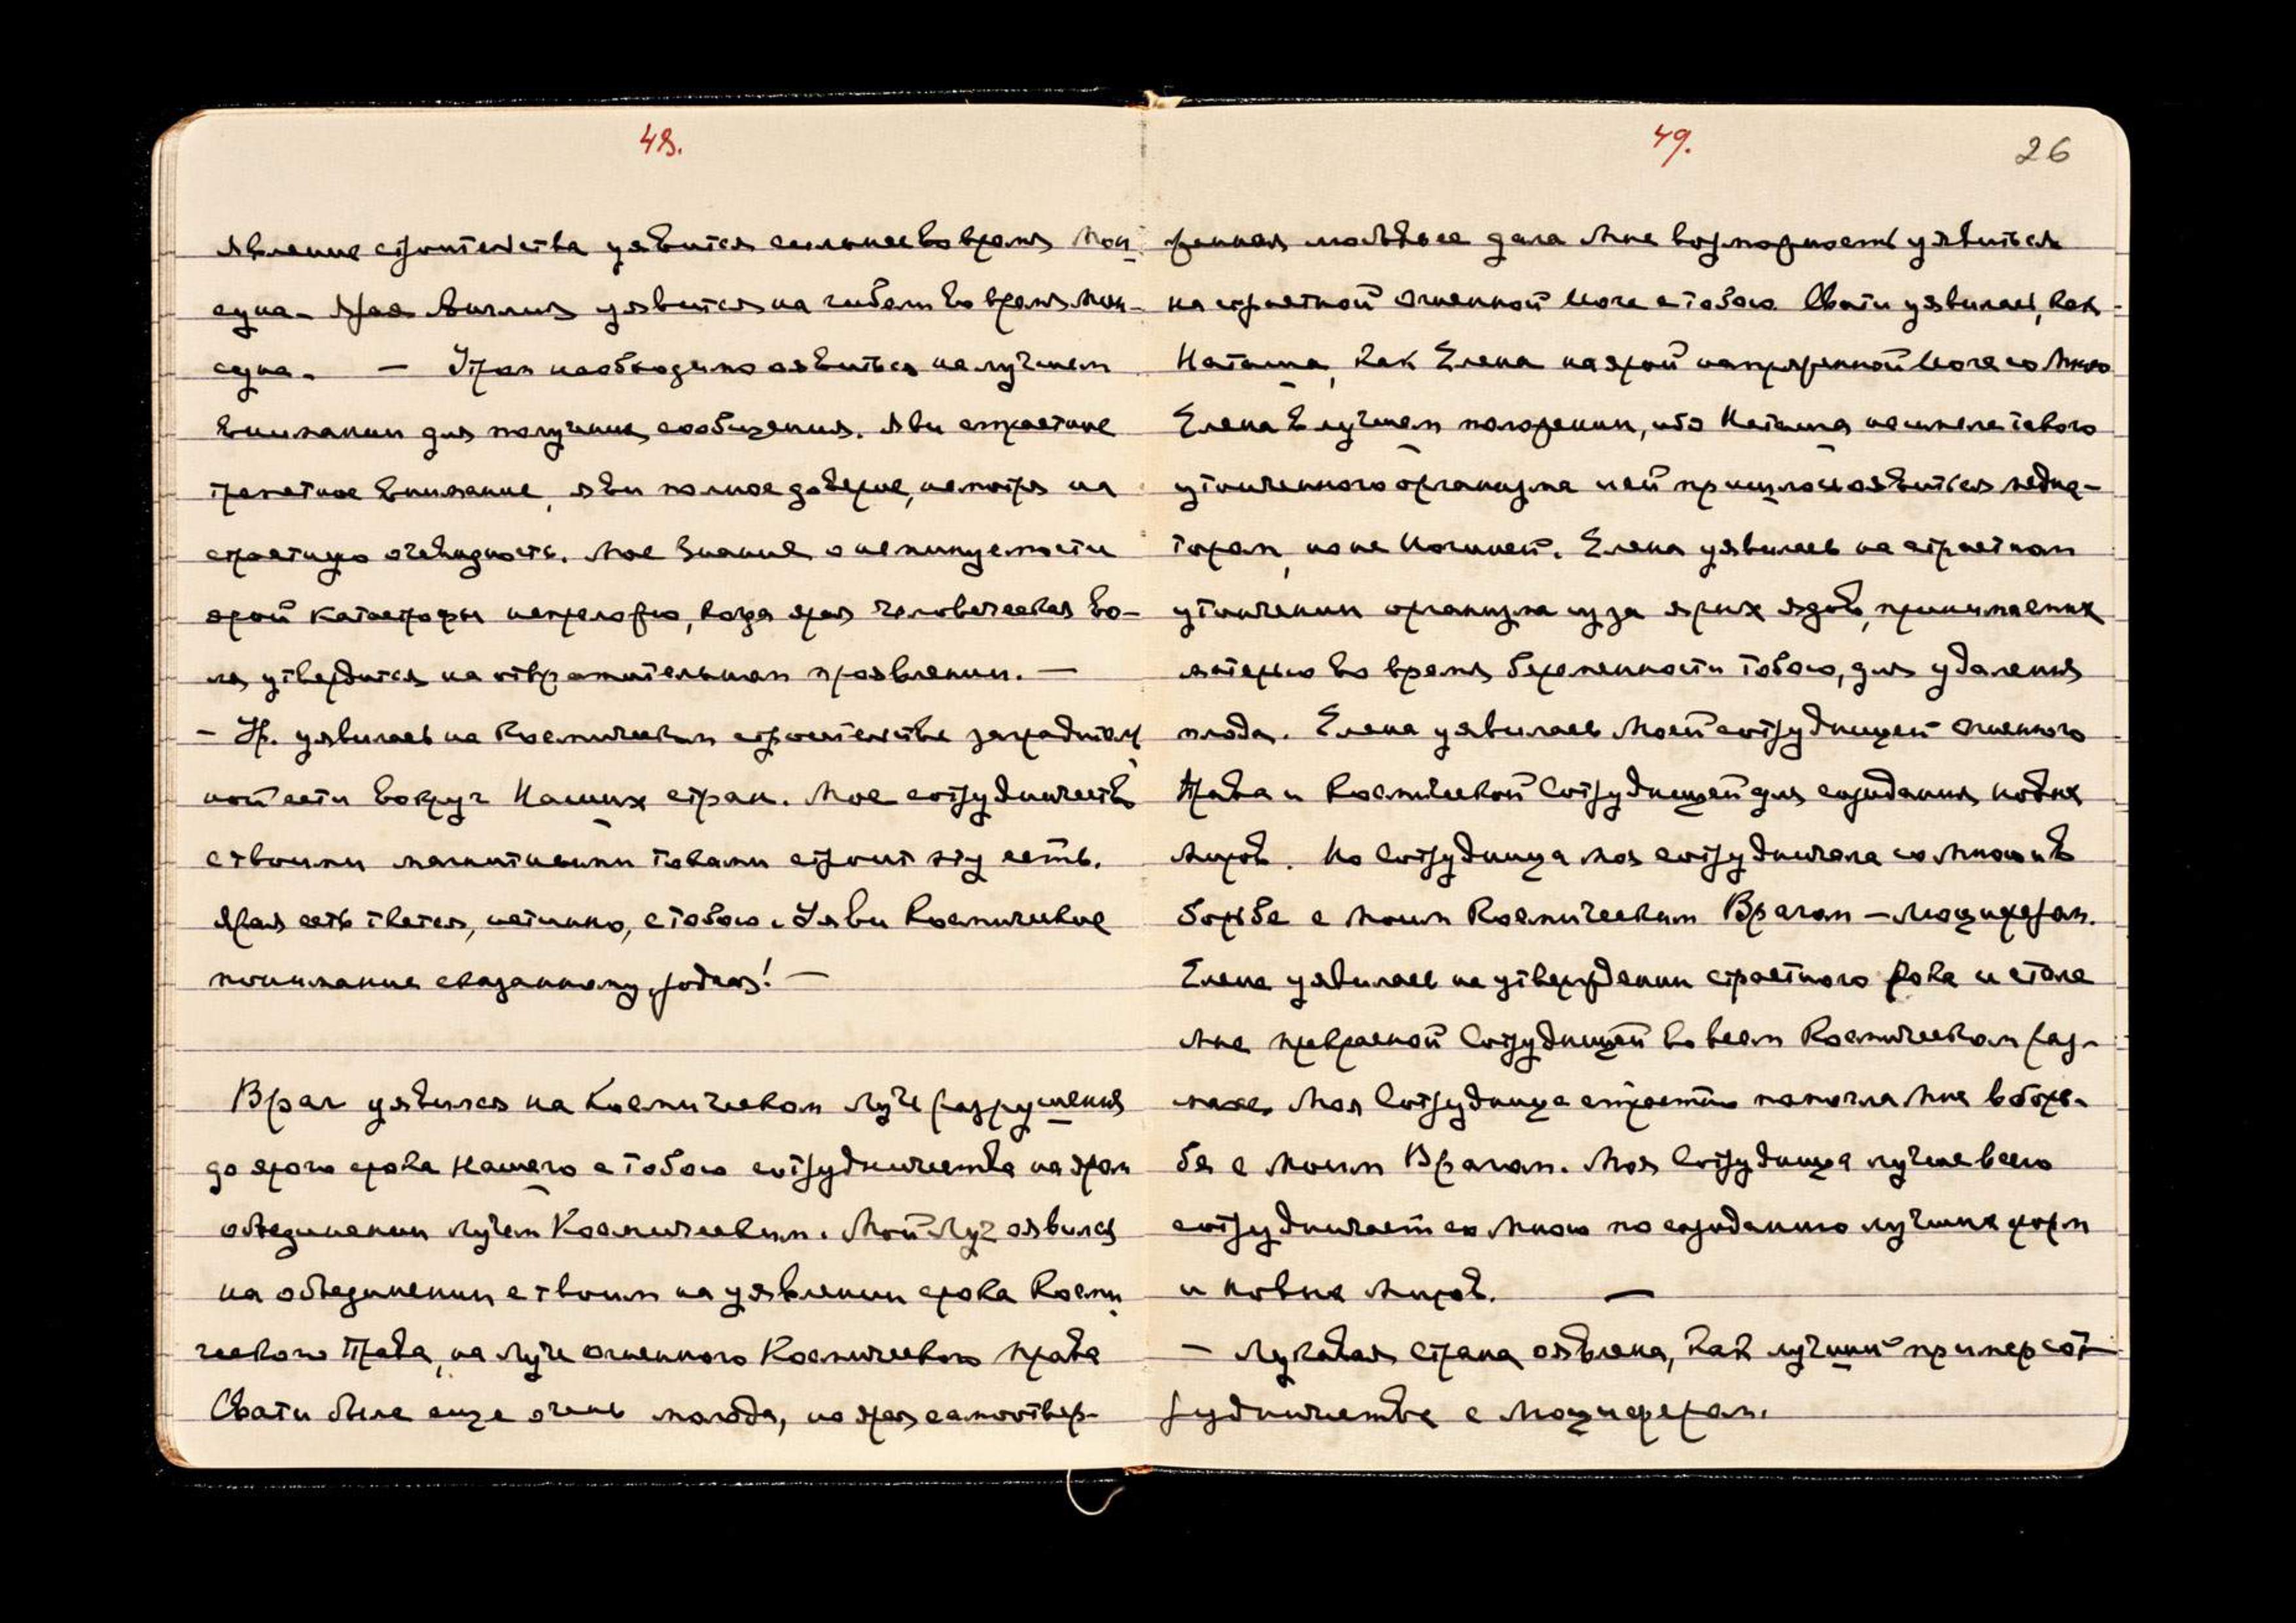 48.
Явление строительства уявится сильнее во время Мон-
суна. Ярая Англия уявится на гибели во время Мон-
суна. — Утром необходимо оявиться на лучшем
внимании для получения сообщения. Яви страстное
трепетное внимание, яви полное доверие, несмотря на
страстную очевидность. Мое знание о неминуемости
ярой катастрофы непреложно, когда ярая человеческая во-
ля утвердится на отвратительном проявлении. —
— Ур. уявилась на Космическом строительстве заградитель-
ной сети вокруг Наших стран. Мое сотрудничество
с твоими магнитными токами строит эту сеть.
Ярая сеть ткется, истинно, с тобою. Уяви Космическое
понимание сказанному, родная! —
Враг уявился на Космическом Луче разрушения
до ярого срока Нашего с тобою сотрудничества на яром
объединении Лучем Космическим. Мой Луч оявился
на объединении с твоим на уявлении срока Косми-
ческого Права, на Луче огненного Космического права
Свати была еще очень молода, но ярая самоотвер-
49.
26
женная мольба ее дала Мне возможность уявиться
на страстной огненной Йоге с тобою. Свати уявилась, как
Наташа, как Елена на ярой напряженной Йоге со Мною
Елена в лучшем положении, ибо Наташа не имела такого
утонченного организма и ей пришлось оявиться медиа-
тором, но не Йогиней. Елена уявилась на страстном
утончении организма из за ярых ядов, принимаемых
матерью во время беременности тобою, для удаления
плода. Елена уявилась Моей сотрудницей огненного
Права и Космической Сотрудницей для созидания новых
миров. Но Сотрудница моя сотрудничала со Мною и в
борьбе с Моим Космическим Врагом — Люцифером.
Елена уявилась на утверждении страстного рока и стала
Мне прекрасной Сотрудницей во всем Космическом раз-
махе. Моя Сотрудница страстно помогла Мне в борь-
бе с Моим Врагом. Моя Сотрудница лучше всего
сотрудничает со Мною по созиданию лучших форм
и новых Миров. —
— Лукавая страна оявлена, как лучший пример сот-
рудничества с Люцифером.